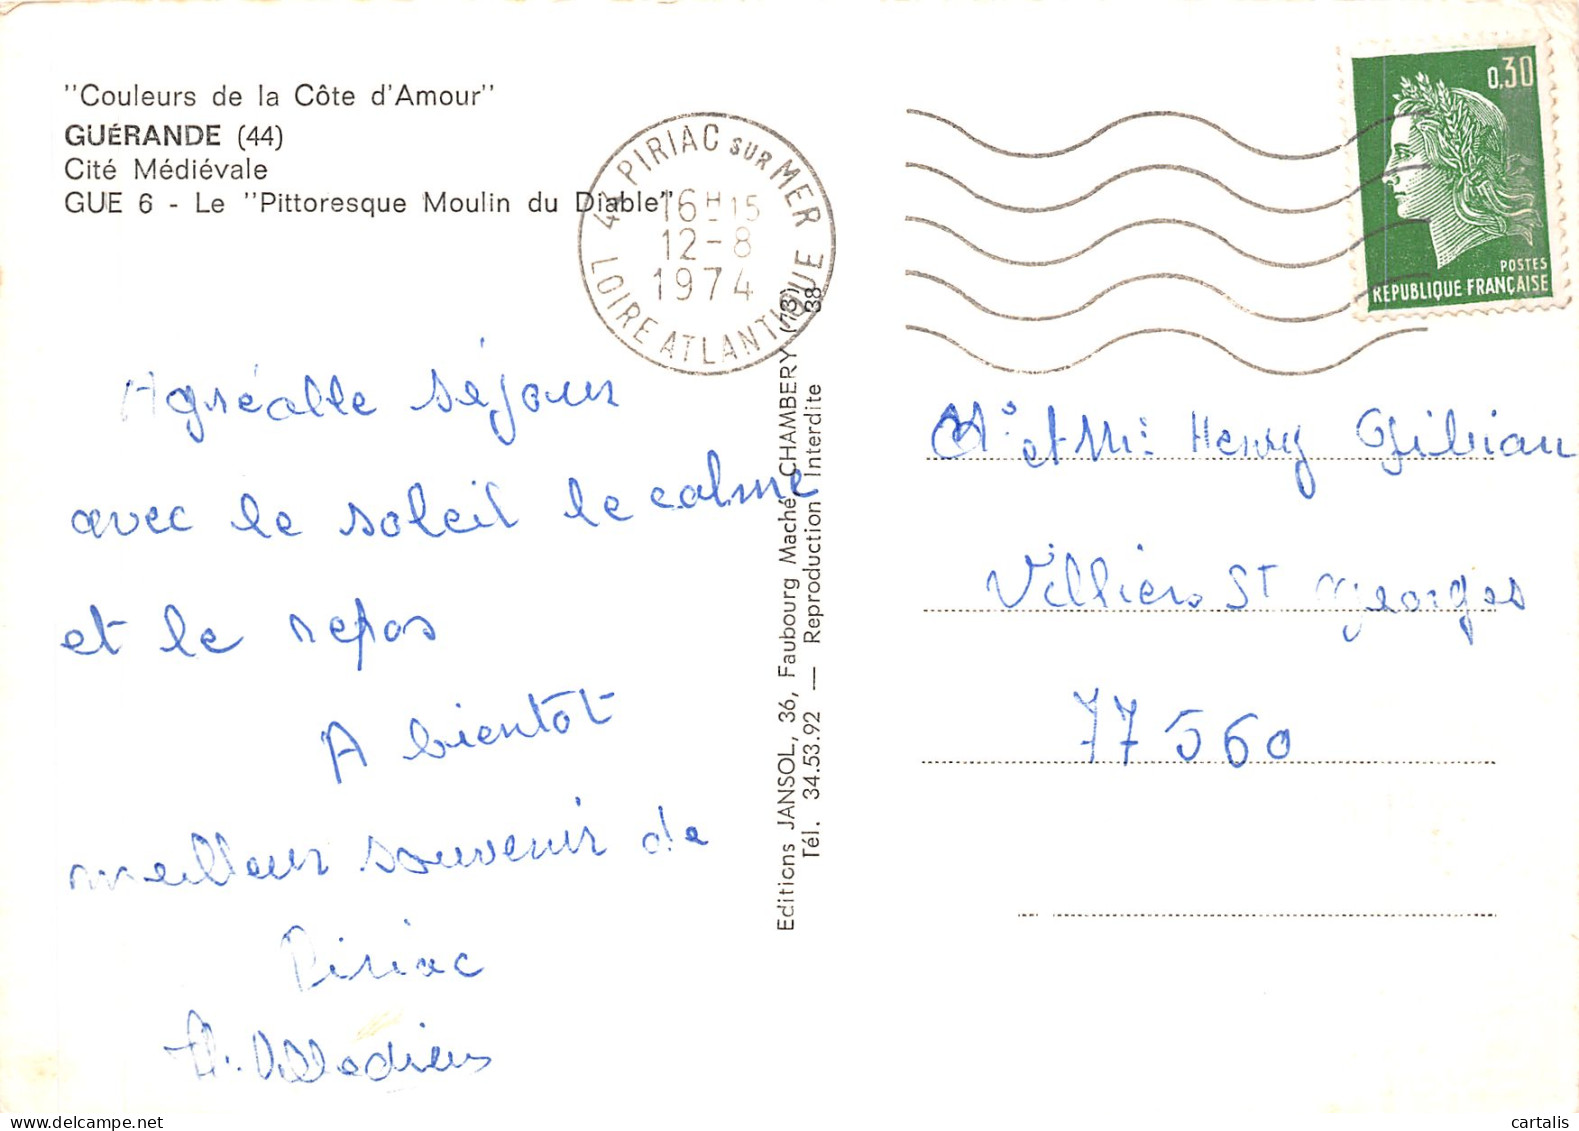 "Couleurs de la Côte d'Amour"
GUÉRANDE (44)
Cité Médiévale
GUE 6 - Le "Pittoresque Moulin du Diable"
44 PIRIAC SUR MER
16H15
12-8
1974
LOIRE ATLANTIQUE
0,30
POSTES
REPUBLIQUE FRANÇAISE
Agréable séjour
avec le soleil le calme
et le repos
A bientôt
meilleur souvenir de
Piriac
Editions JANSOL, 36, Faubourg Maché CHAMBERY (73)
Tél. 34.53.92 — Reproduction Interdite 38
Mr et Mme Henry
Villiers St Georges
77560
cartalis